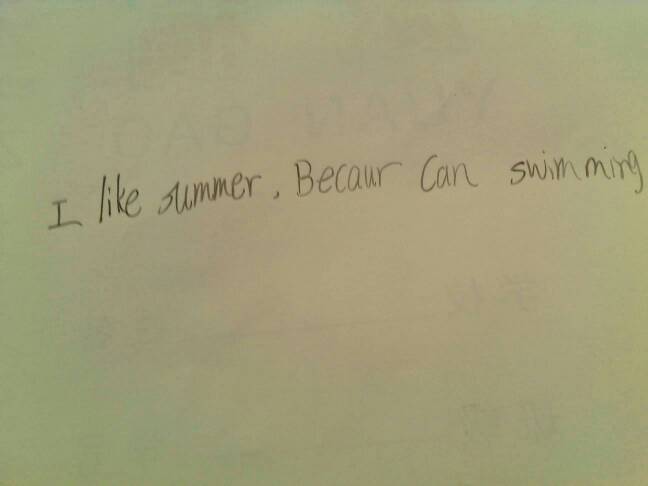 I like summer. Becaur Can swimming